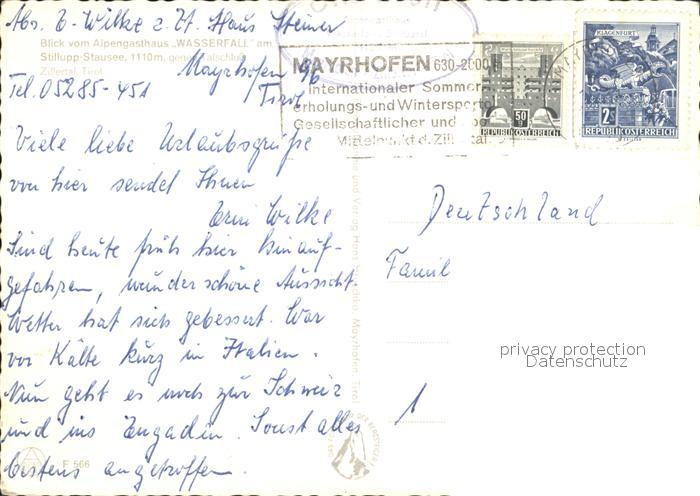 Abs. E. Wilke z. Zt. Haus Steiner
Blick vom Alpengasthaus „WASSERFALL" am
Stillupp-Stausee, 1110m,
Zillertal, Tirol
Mayrhofen 196
Tel. 05285-451 Tirol
Viele liebe Urlaubsgrüße
von hier sendet Ihnen
Erni Wilke
Sind heute früh hier hinauf-
gefahren, wunderschöne Aussicht.
Wetter hat sich gebessert. War
vor Kälte kurz in Italien.
Nun geht es noch zur Schweiz
und ins Engadin. Sonst alles
bestens angetroffen.
F 566
MAYRHOFEN 630-2000
Internationaler Sommer
erholungs- und Wintersporto
Gesellschaftlicher und
Mittelpunkt d. Zill
50
REPUBLIK ÖSTERREICH
KLAGENFURT
2S
REPUBLIK ÖSTERREICH
Deutschland
Famil
1
privacy protection
Datenschutz